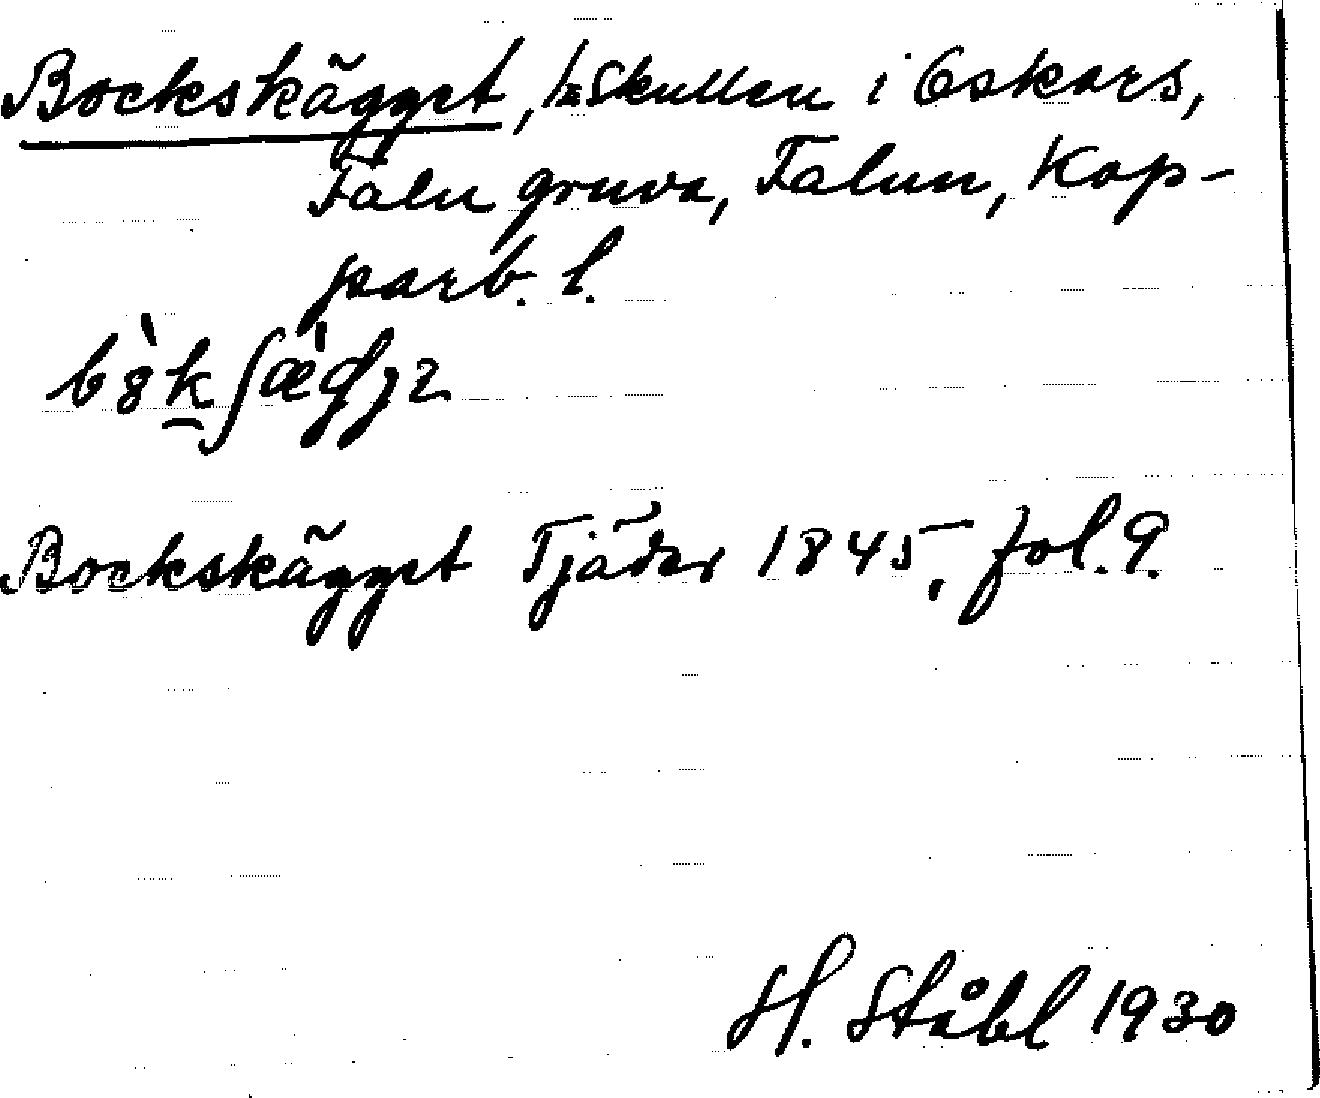 Bockskägget, i Skullen i Oskars,
Falu gruva, Falun, Kop-
parb. l.
Bockskägget Tjäder 1845, fol. 9.
H. Ståhl 1930